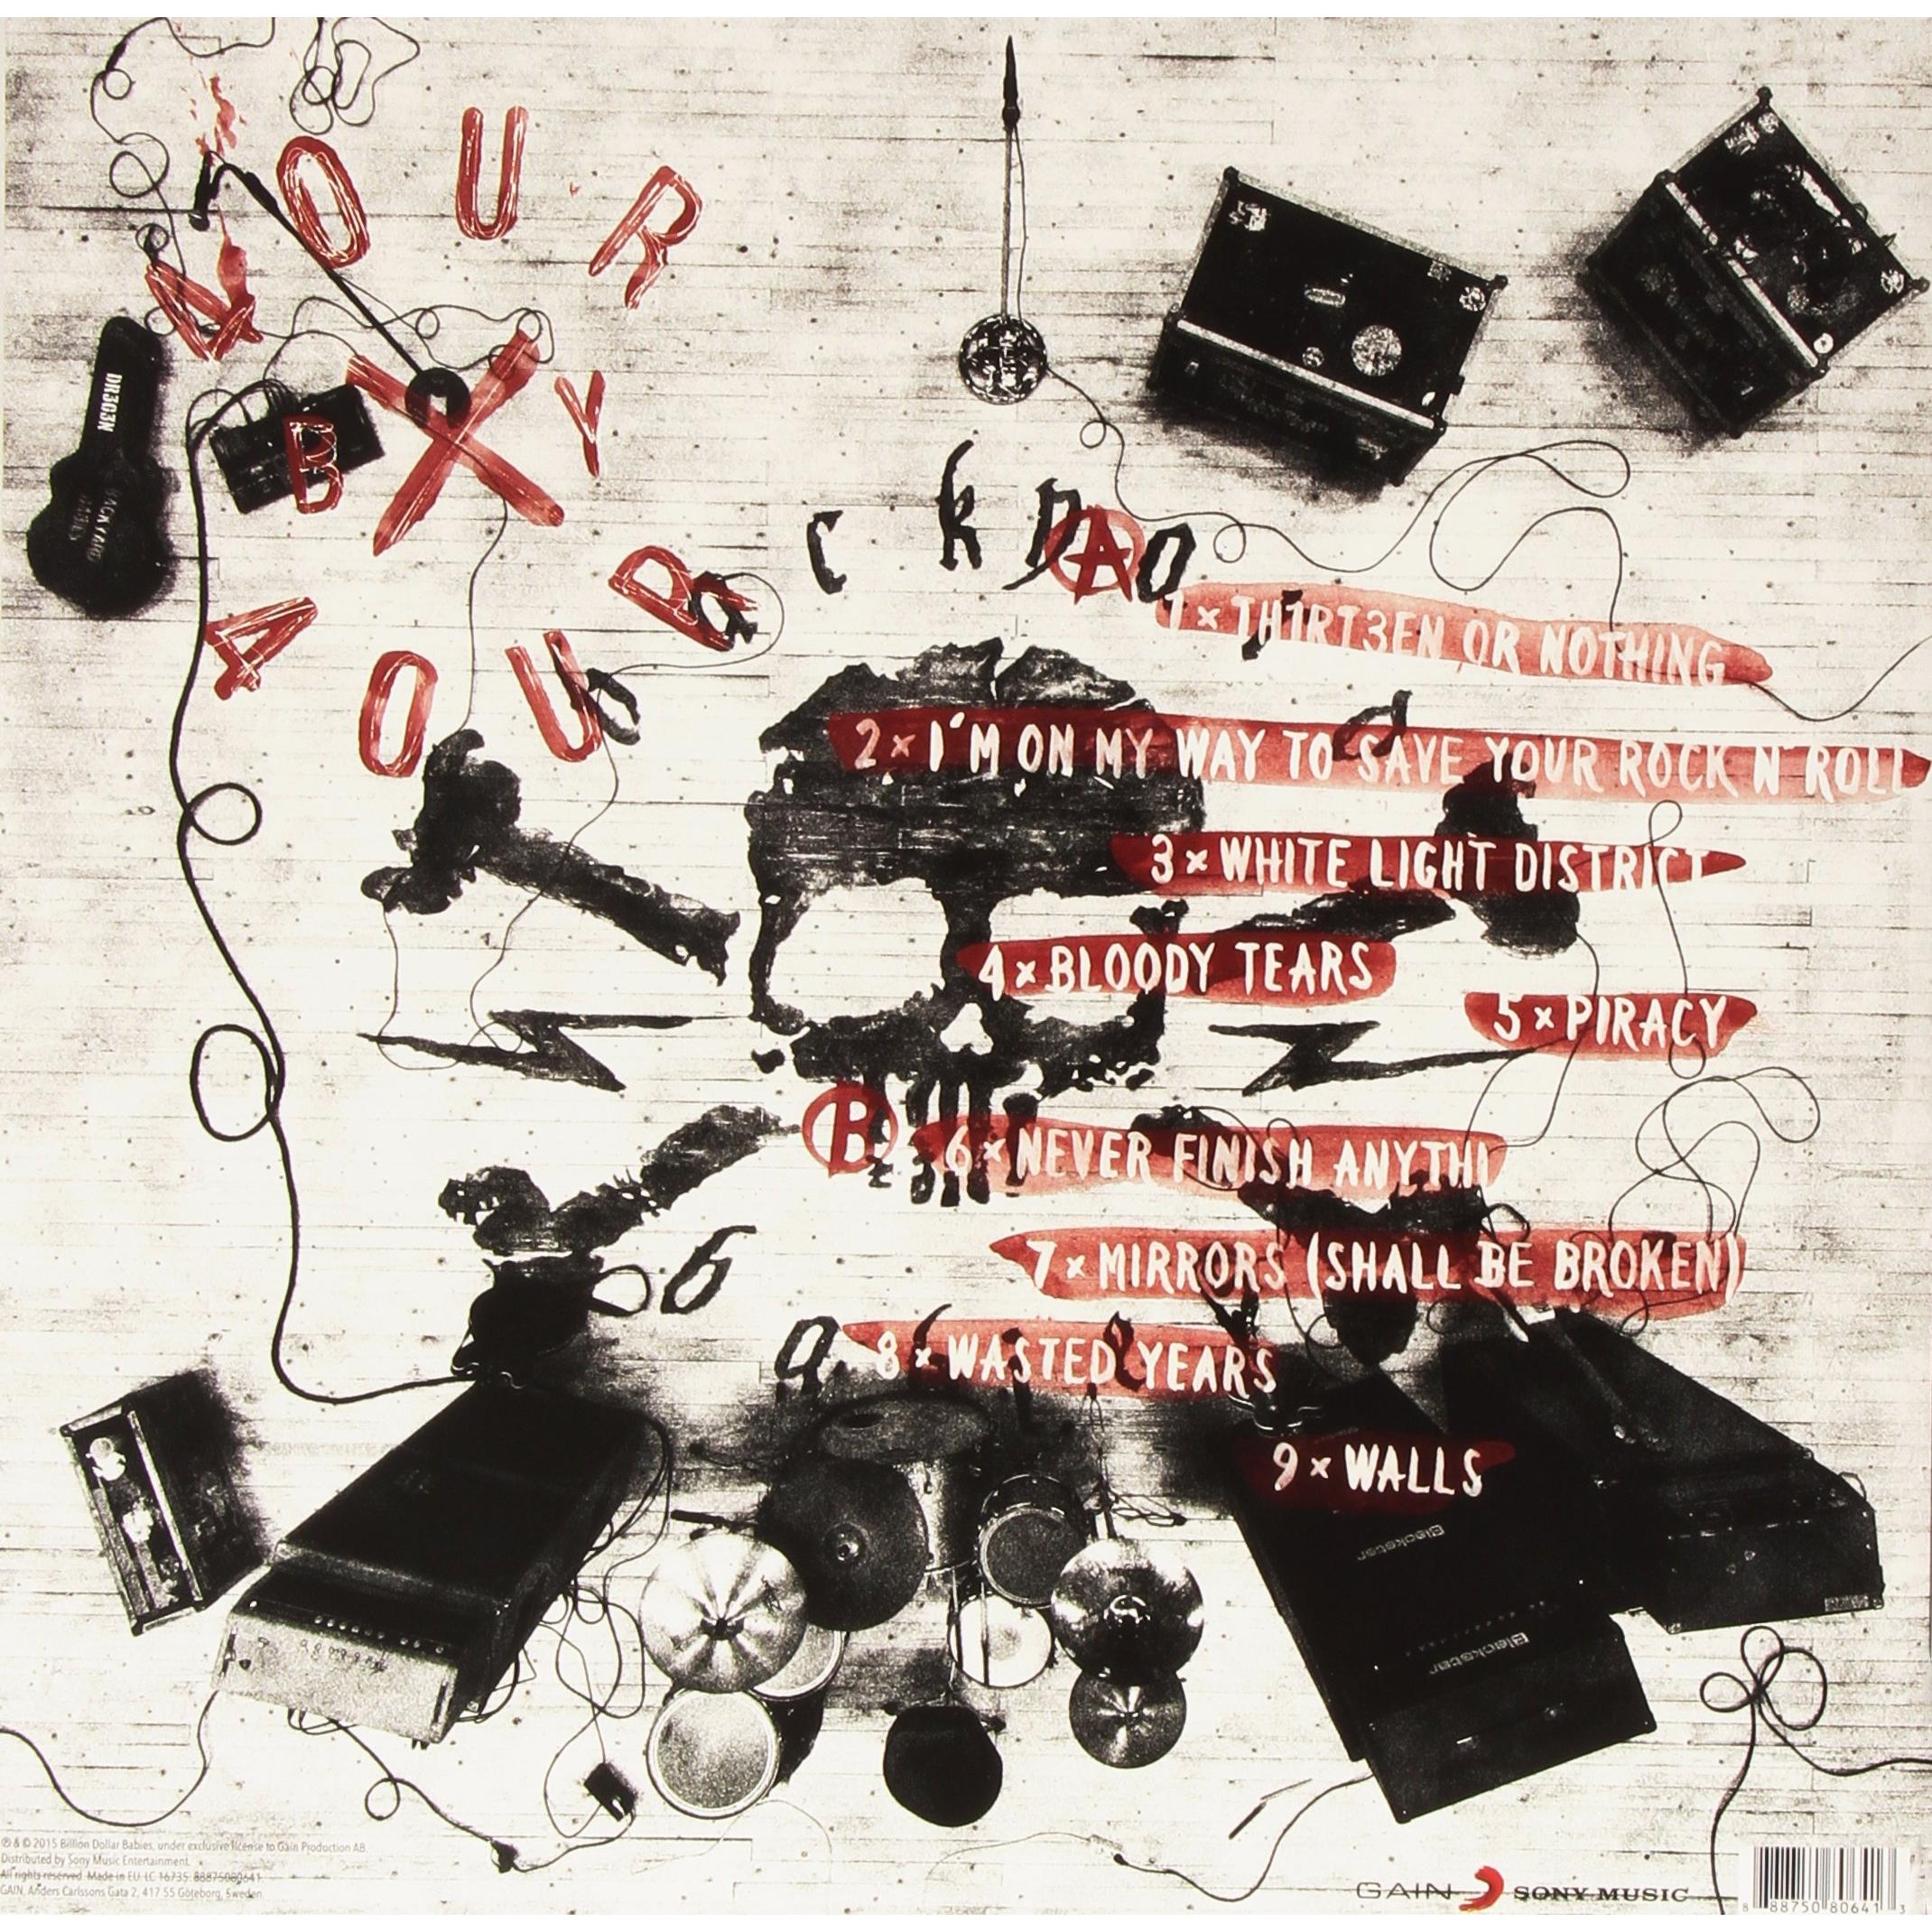 4 OUR
B X Y
4 OUR
DR3G3N
A
B
1 × TH1RT3EN OR NOTHING
2 × I'M ON MY WAY TO SAVE YOUR ROCK N' ROLL
3 × WHITE LIGHT DISTRICT
4 × BLOODY TEARS
5 × PIRACY
6 × NEVER FINISH ANYTHI
7 × MIRRORS (SHALL BE BROKEN)
8 × WASTED YEARS
9 × WALLS
Blackstar
Blackstar
℗ & © 2015 Billion Dollar Babies, under exclusive license to Gain Production AB.
Distributed by Sony Music Entertainment.
All rights reserved. Made in EU. LC 16735. 88875080641
GAIN, Anders Carlssons Gata 2, 417 55 Göteborg, Sweden.
GAIN SONY MUSIC
8 88750 80641 3